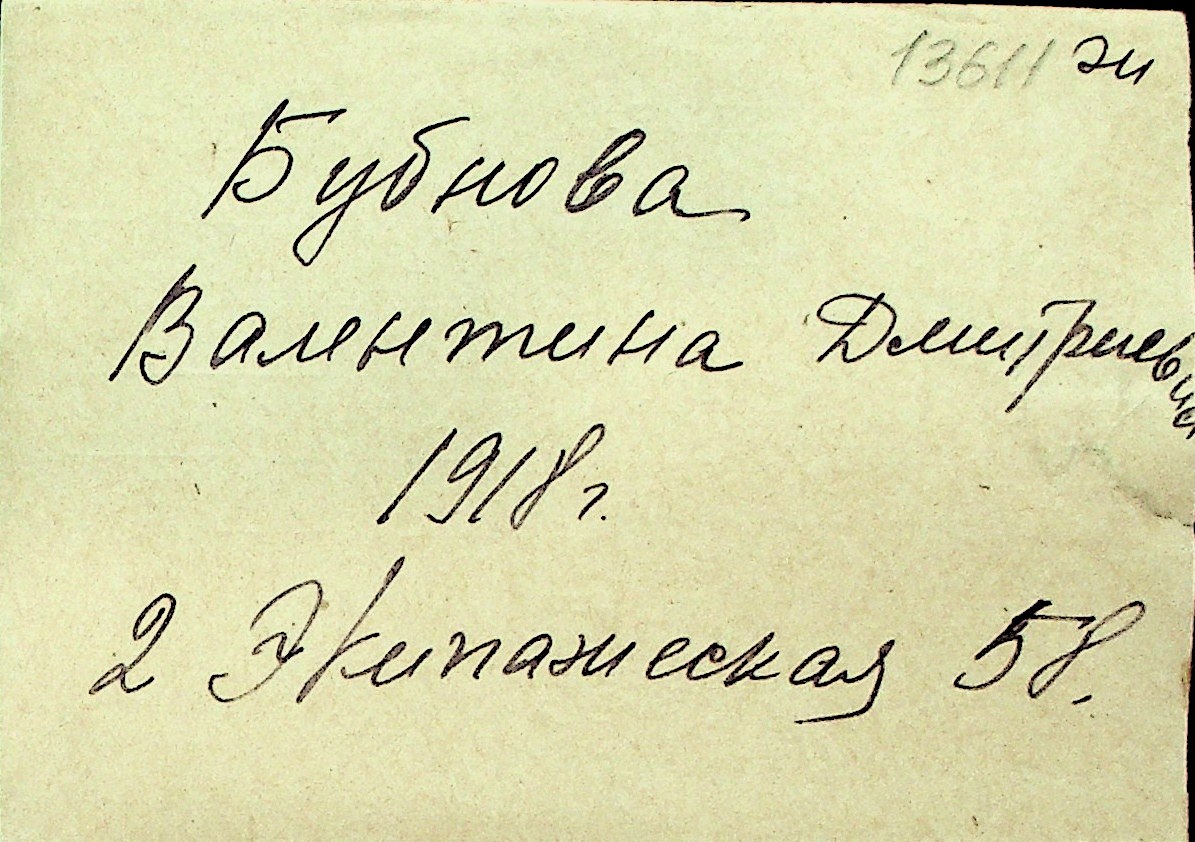 13611 эи
Бубнова
Валентина Дмитриевна
1918 г.
2 Экипажеская 58.